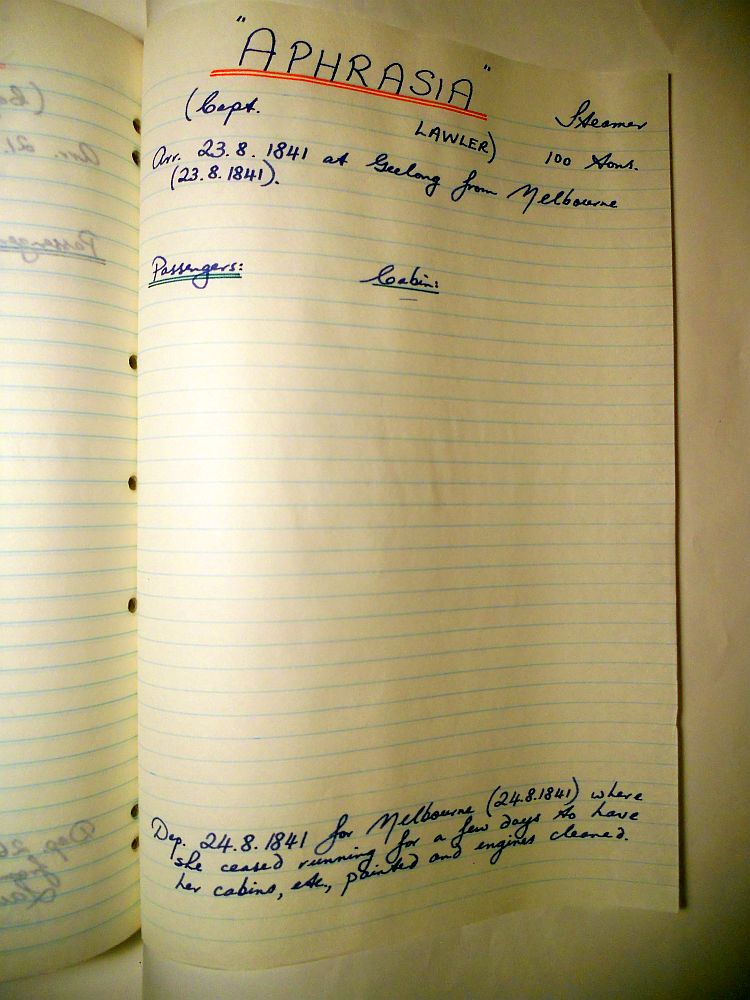 "APHRASIA"
(Capt. LAWLER) Steamer
100 tons.
Arr. 23.8.1841 at Geelong from Melbourne
(23.8.1841).
Passengers: Cabin:
Dep. 24.8.1841 for Melbourne (24.8.1841) where
she ceased running for a few days to have
her cabins, etc., painted and engines cleaned.